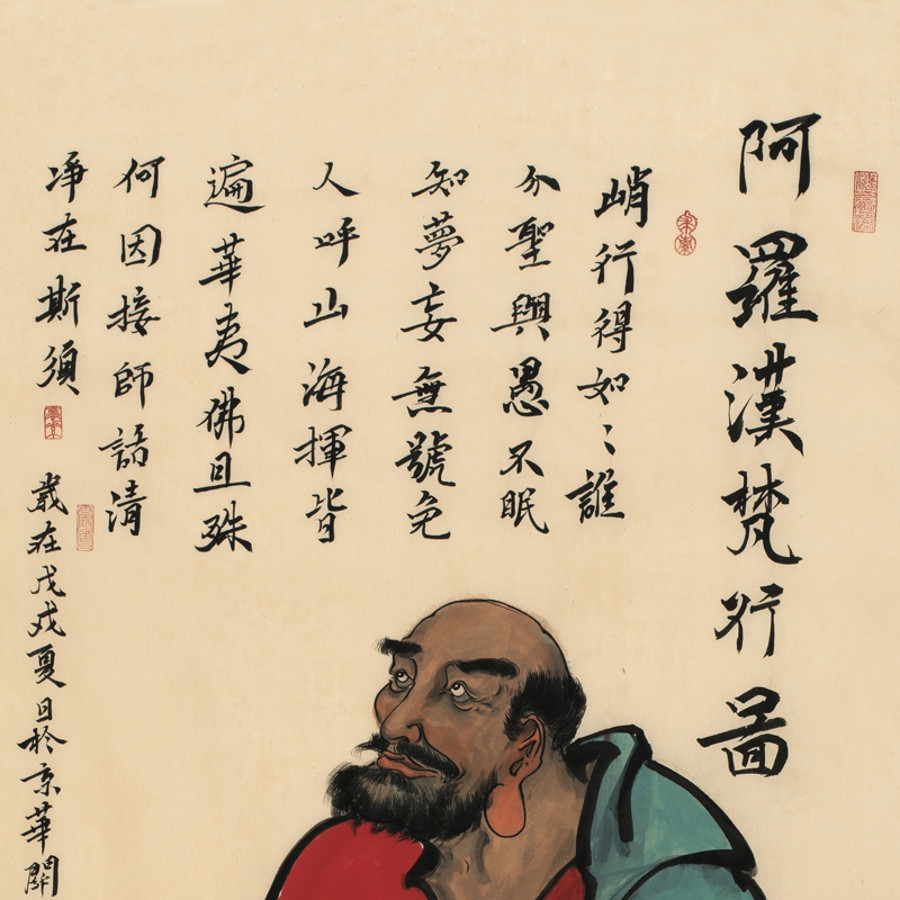 阿羅漢梵行圖
峭行得如〻誰
分聖與愚不眠
知夢妄無號免
人呼山海揮皆
遍華夷佛且殊
何因接師話清
净在斯須
歲在戊戌夏日於京華關